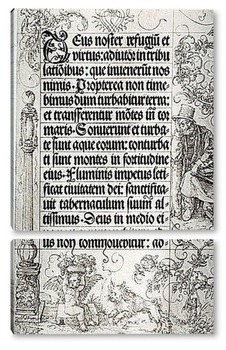 Deus noster refugiū et
virtus: adiutor in tribu
lationibus: que inuenerūt nos
nimis · Propterea non time
bimus dum turbabitur terra:
et transferentur mōtes in cor
maris · Sonuerunt et turba
te sunt aque eorum: conturba
ti sunt montes in fortitudine
eius · Fluminis impetus leti
ficat ciuitatem dei: sanctifica
uit tabernaculum suum al
tissimus · Deus in medio ei
us non commouebitur: ad